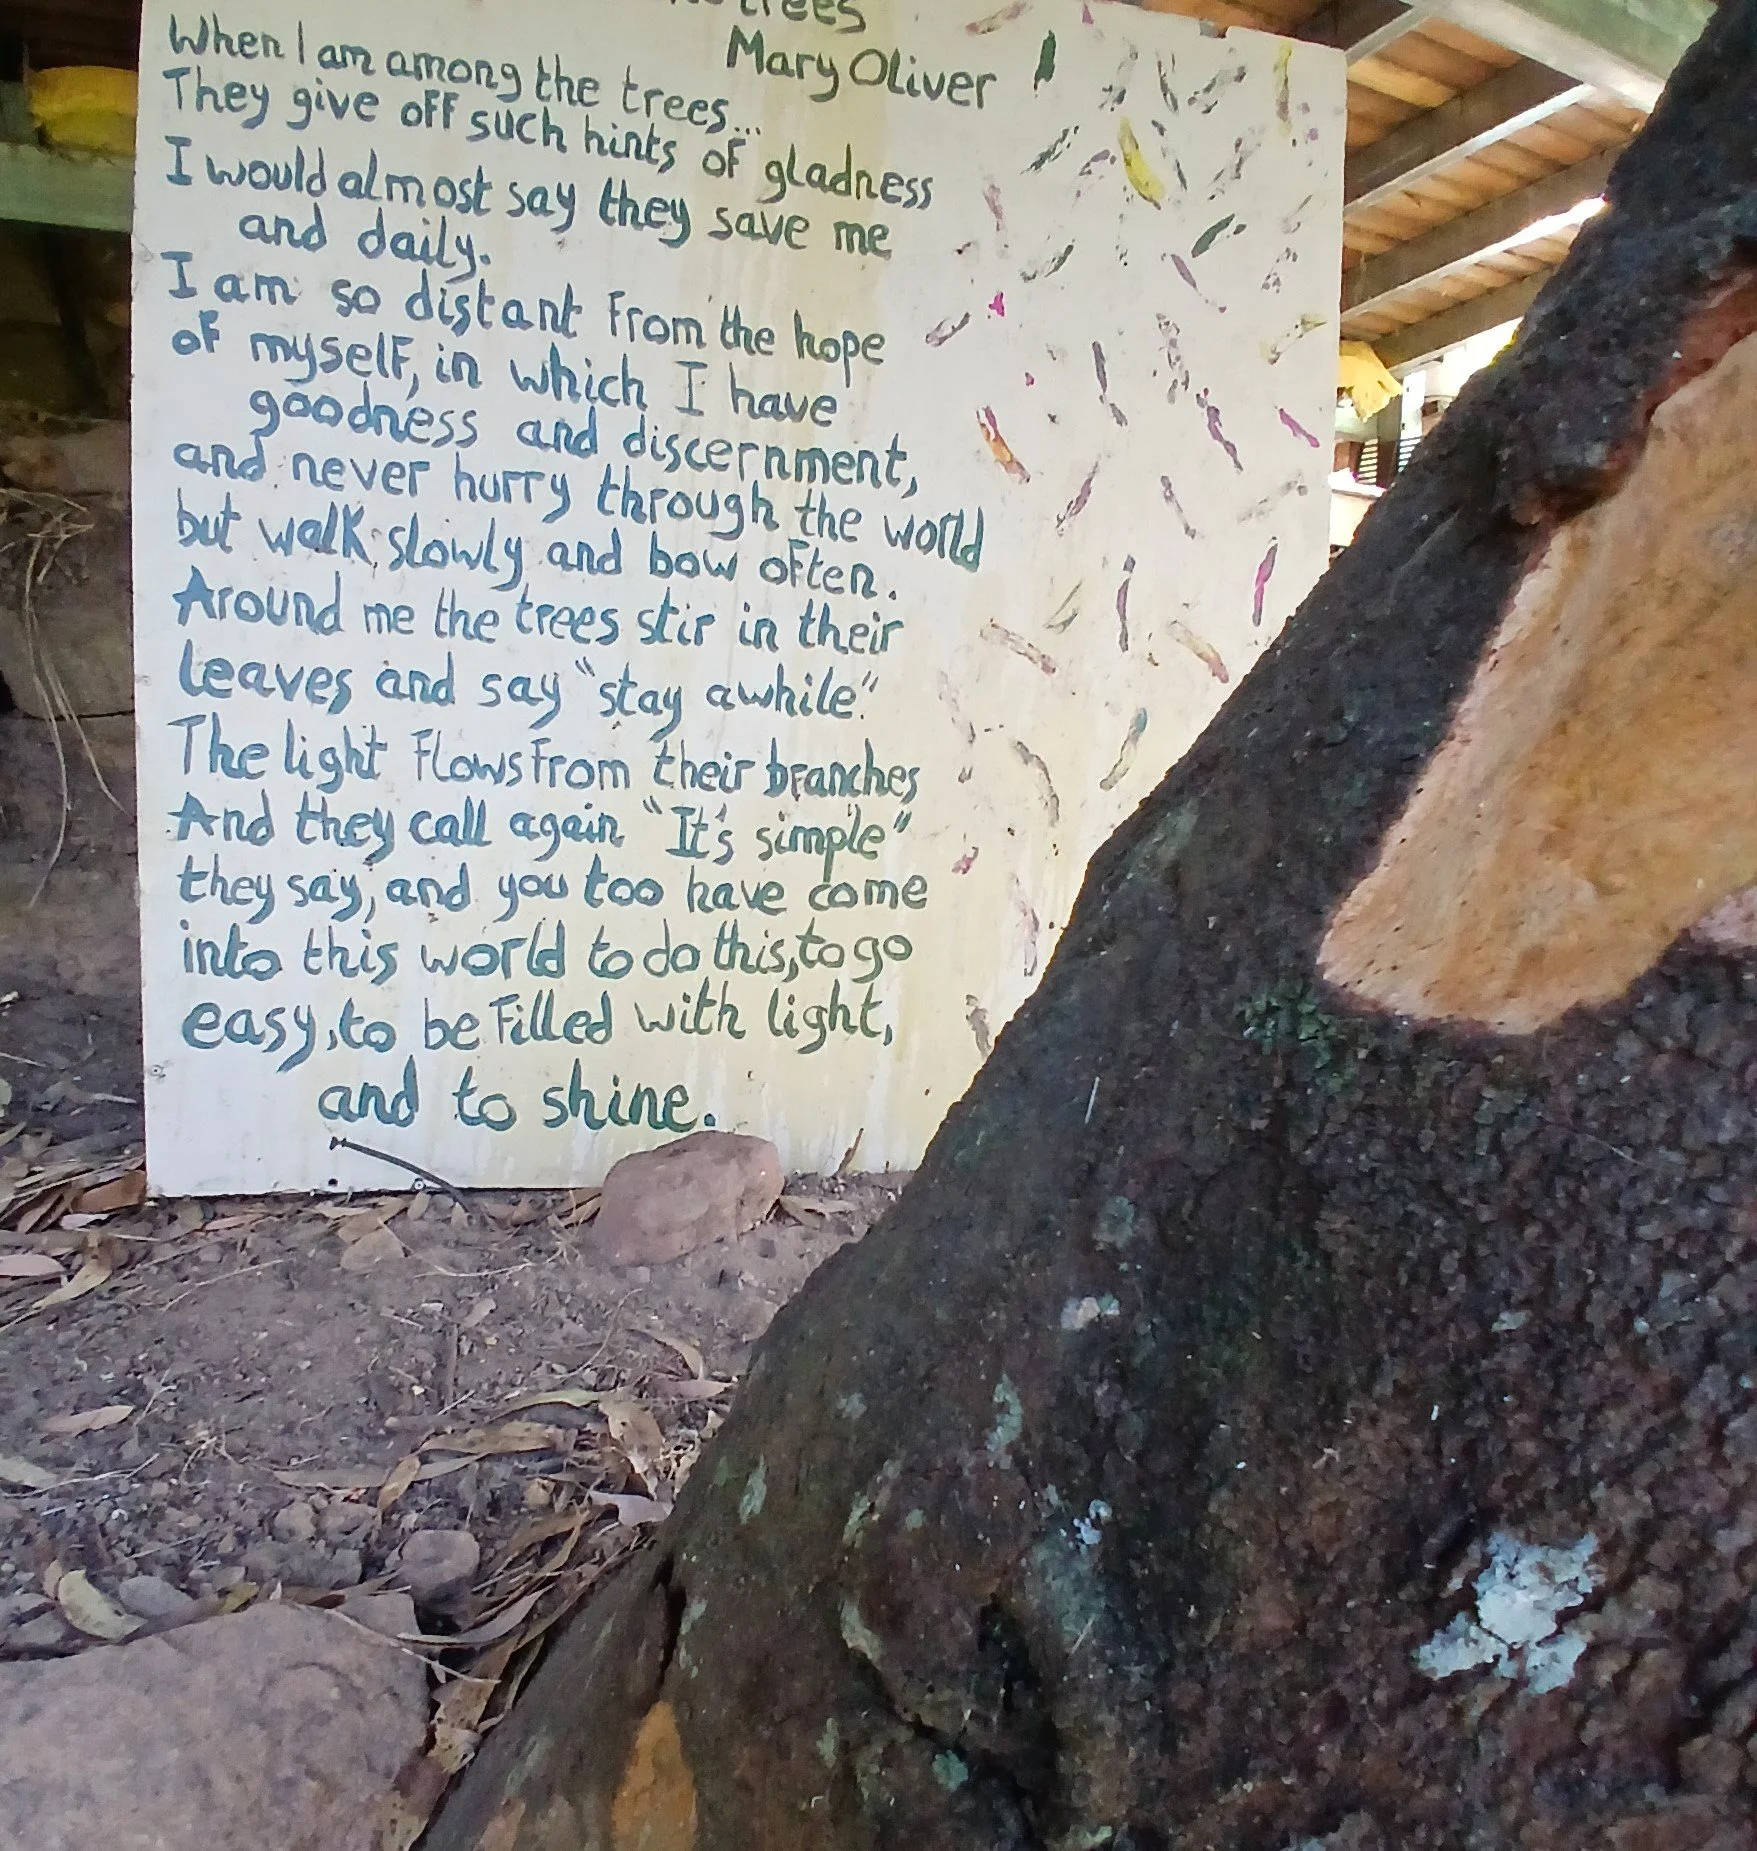 trees
Mary Oliver
When I am among the trees...
They give off such hints of gladness
I would almost say they save me
and daily.
I am so distant from the hope
of myself, in which I have
goodness and discernment,
and never hurry through the world
but walk slowly and bow often.
Around me the trees stir in their
leaves and say "stay awhile".
The light flows from their branches
And they call again "It's simple"
they say, and you too have come
into this world to do this, to go
easy, to be filled with light,
and to shine.